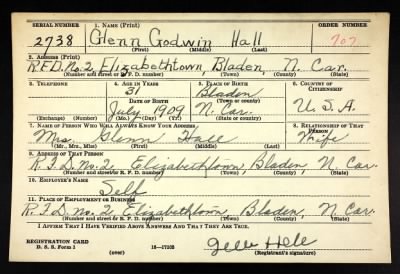 SERIAL NUMBER 1. NAME (Print) ORDER NUMBER
2738 Glenn Godwin Hall 707
(First) (Middle) (Last)
2. ADDRESS (Print)
R.F.D. No. 2, Elizabethtown, Bladen, N. Car.
(Number and street or R. F. D. number) (Town) (County) (State)
3. TELEPHONE 4. AGE IN YEARS 5. PLACE OF BIRTH 6. COUNTRY OF CITIZENSHIP
31 Bladen
DATE OF BIRTH (Town or county)
July 1909 N. Car. U.S.A.
(Exchange) (Number) (Mo.) (Day) (Yr.) (State or country)
7. NAME OF PERSON WHO WILL ALWAYS KNOW YOUR ADDRESS 8. RELATIONSHIP OF THAT PERSON
Mrs Glenn Hall Wife
(Mr., Mrs., Miss) (First) (Middle) (Last)
9. ADDRESS OF THAT PERSON
R.F.D. No. 2 Elizabethtown, Bladen, N. Car.
(Number and street or R. F. D. number) (Town) (County) (State)
10. EMPLOYER'S NAME
Self
11. PLACE OF EMPLOYMENT OR BUSINESS
R.F.D. no. 2 Elizabethtown, Bladen, N. Car.
(Number and street or R. F. D. number) (Town) (County) (State)
I AFFIRM THAT I HAVE VERIFIED ABOVE ANSWERS AND THAT THEY ARE TRUE.
REGISTRATION CARD
D. S. S. Form 1 (over) 16—17105 (Registrant's signature)